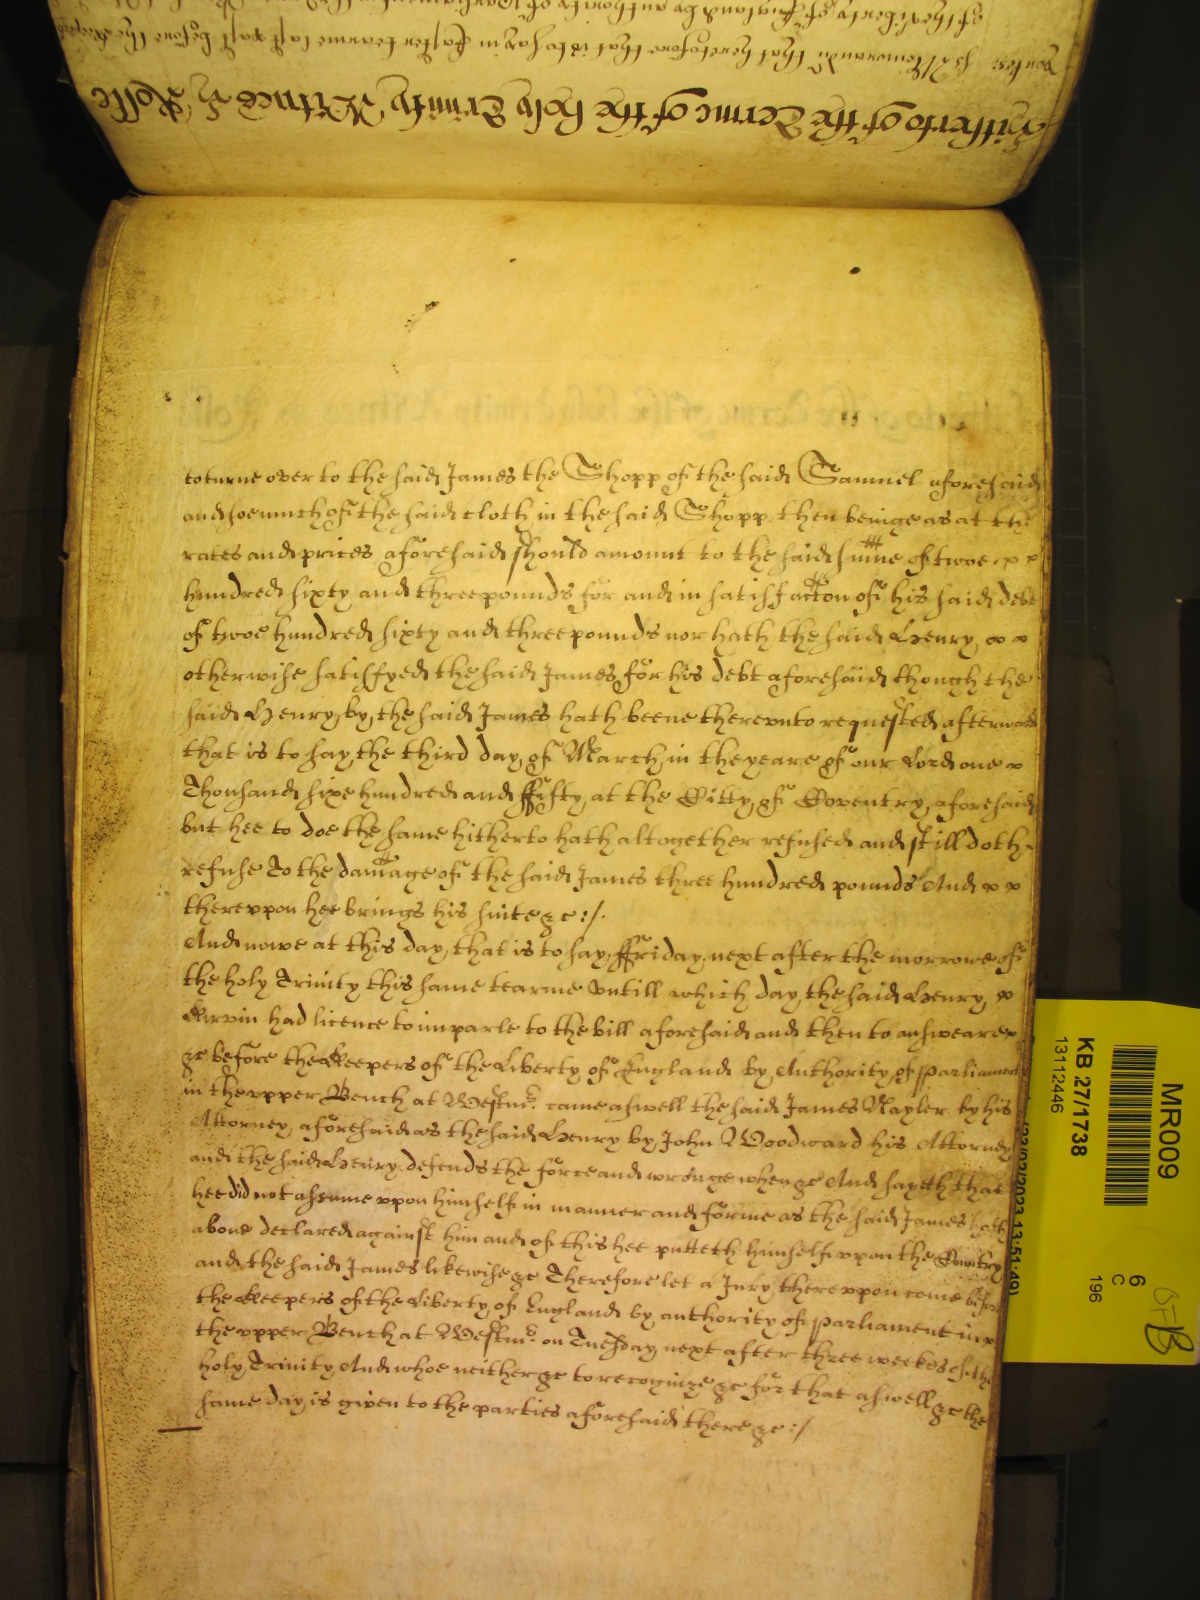 of the liberty of England by authority of Parliament
ss Memorandu that heretofore that is to say in Easter tearme last past before the Keepers
Witherto of the Terme of the holy Trinity Witnes H Rolle
to turne over to the said James the Shopp of the said Samuel aforesaid
and soe much of the said cloth in the said Shopp then beinge as at the
rates and prices aforesaid should amount to the said sume of twoe
hundred sixty and three pounds for and in satisfaccon of his said debt
of twoe hundred sixty and three pounds nor hath the said Henry
otherwise satisfyed the said James for his debt aforesaid though the
said Henry by the said James hath beene therevnto requested afterwards
that is to say the third day of March in the yeare of our Lord one
Thousand sixe hundred and ffifty at the Citty of Coventry aforesaid
but hee to doe the same hitherto hath altogether refused and still doth
refuse To the damage of the said James three hundred pounds And
therevpon hee brings his suite &c :/.
And nowe at this day that is to say ffriday next after the morrowe of
the holy Trinity this same tearme vntill which day the said Henry
Kirvin had licence to imparle to the bill aforesaid and then to answeare
&c before the Keepers of the Liberty of England by Authority of Parliament
in the vpper Bench at Westmr. came aswell the said James Nayler by his
Attorney aforesaid as the said Henry by John Woodward his Attorney
and the said Henry defends the force and wronge when &c And sayeth that
hee did not assume vpon himself in manner and forme as the said James hath
above declared against him and of this hee putteth himself vpon the Country
and the said James likewise &c Therefore let a Jury therevpon come before
the Keepers of the Liberty of England by authority of parliament in
the vpper Bench at Westmr. on Tuesday next after three weekes of the
holy Trinity And whoe neither &c to recognize &c for that aswell &c the
same day is given to the parties aforesaid there &c :/
MR009
6
C
196
KB 27/1738
13112446
(23/02/2023 13:51:49)